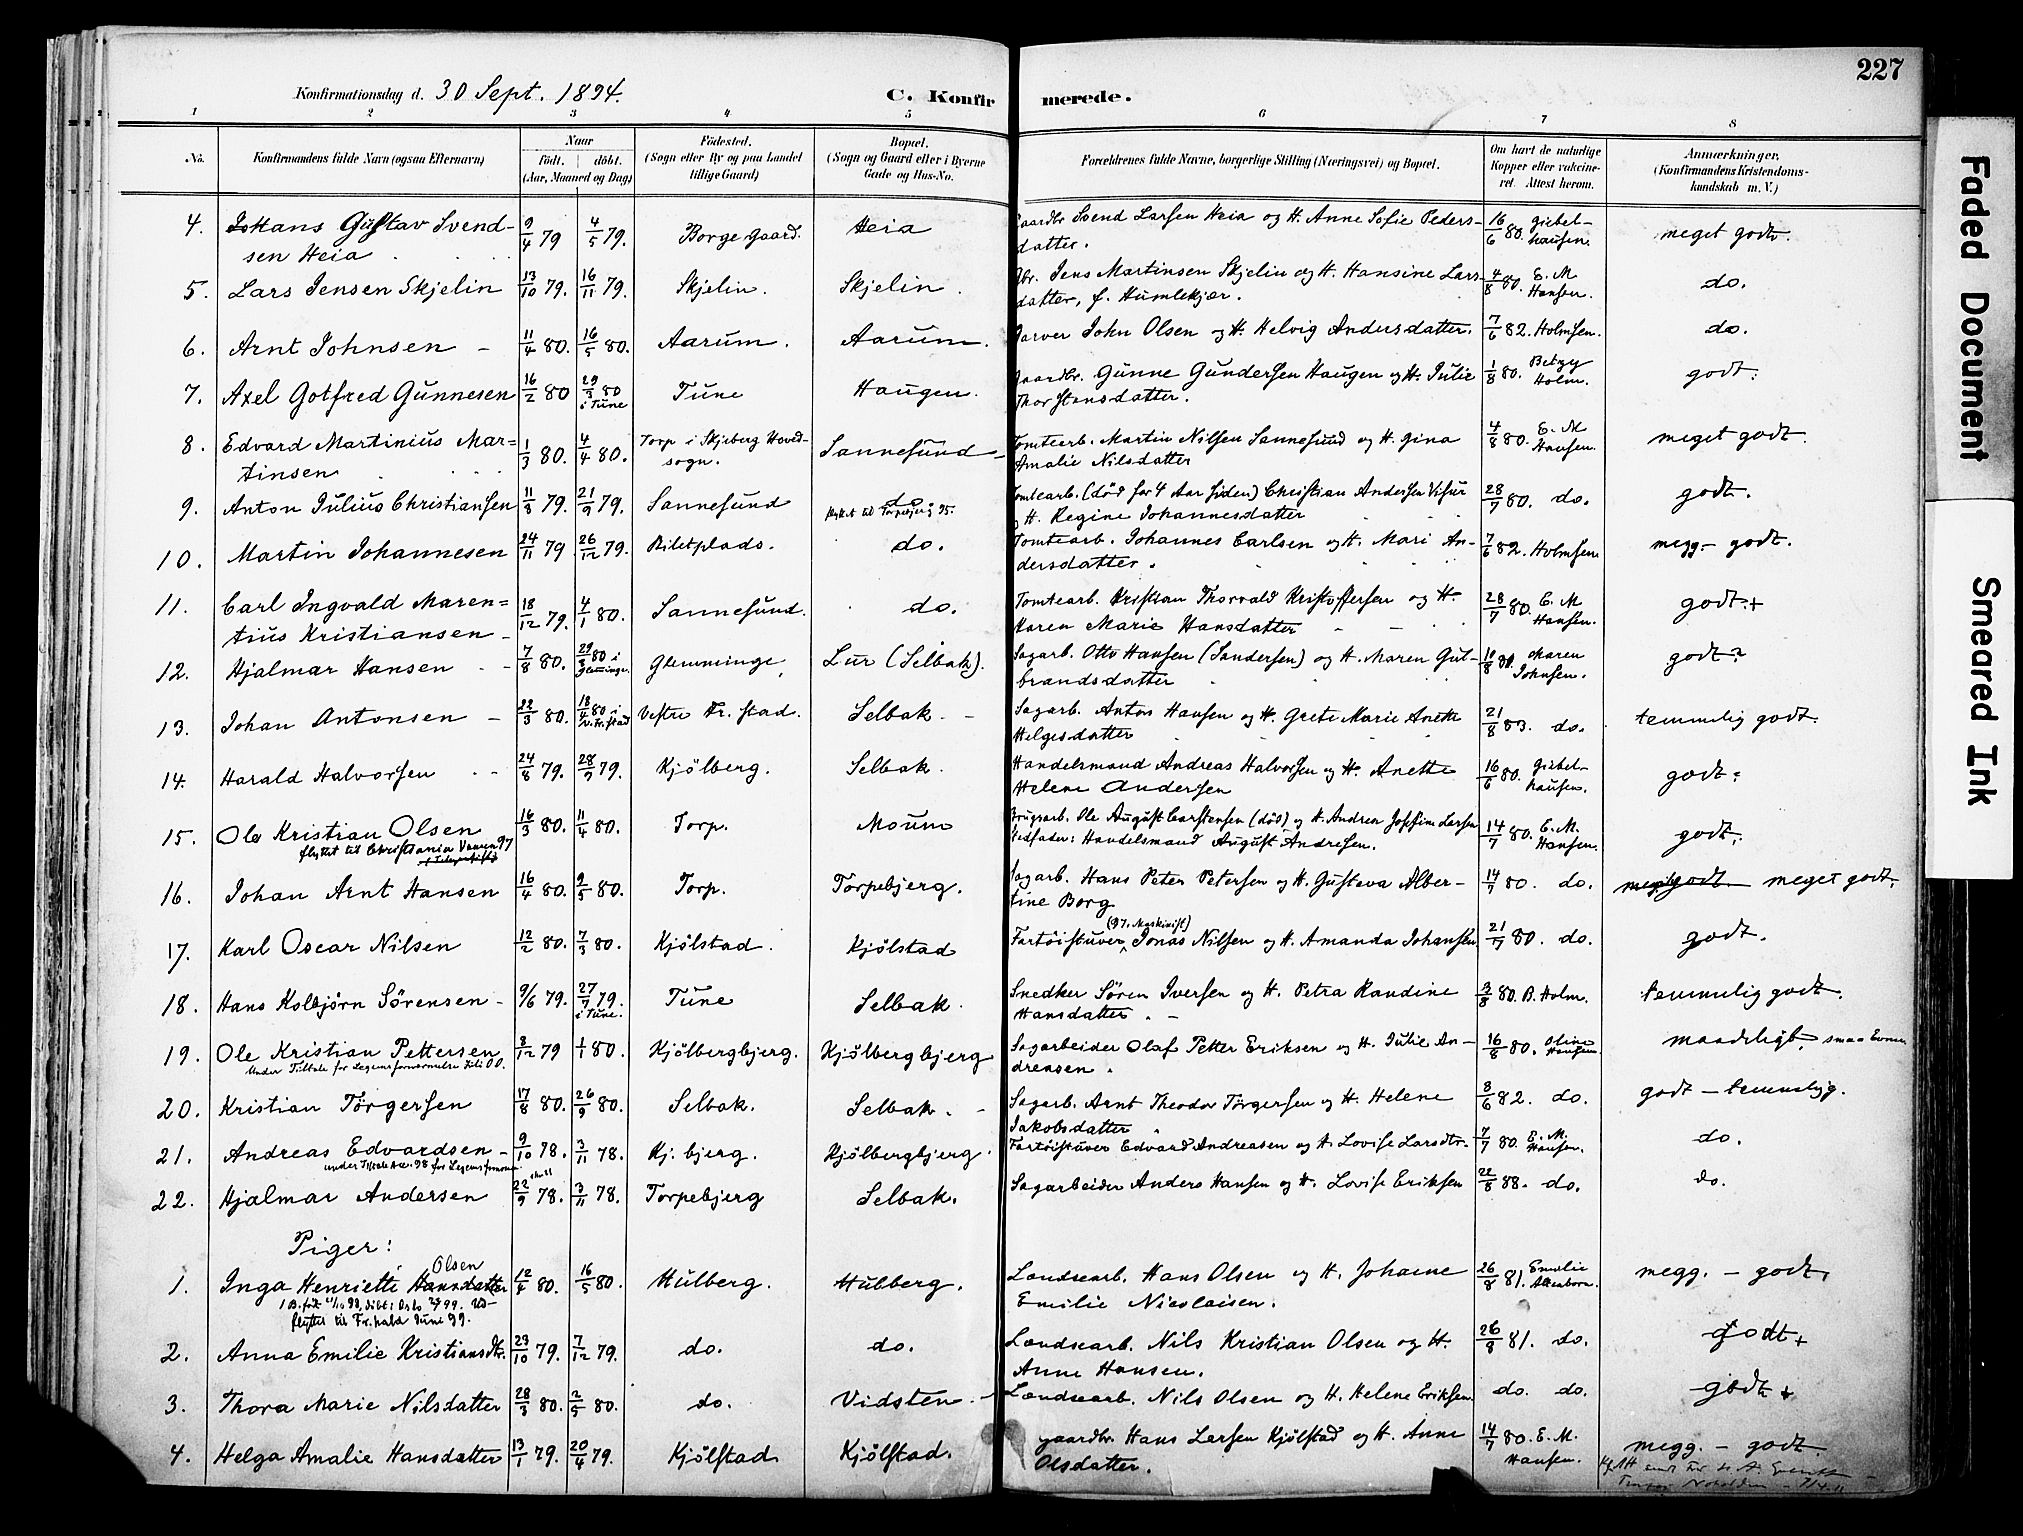 227
Konfirmationsdag d. 30 Sept. 1894.
C. Konfirmerede.
1 2 3 4 5 6 7 8
No. Konfirmandens fulde Navn (ogsaa Efternavn) Naar født. døbt. (Aar, Maaned og Dag) Fødested. (Sogn eller By og paa Landet tillige Gaard) Bopæl. (Sogn og Gaard eller i Byerne Gade og Hus-No. Forældrenes fulde Navne, borgerlige Stilling (Næringsvei) og Bopæl. Om havt de naturlige Kopper eller vakcineret. Attest herom. Anmærkninger. (Konfirmandens Kristendomskundskab m. V.)
4. Johans Gustav Svend- 9/4 79 4/5 79. Borge Gaard. Heia Gaardbr Svend Larsen Heia og H. Anne Sofie Peders- 16/6 80. Giebel- meget godt.
sen Heia datter. hausen.
5. Lars Jensen Skjelin 13/10 79. 16/11 79. Skjelin. Skjelin. Gbr. Jens Martinsen Skjelin og H. Hansine Lars- 4/8 80. E. M. do.
datter, f. Humlekjær. Hansen.
6. Arnt Johnsen 11/4 80. 16/5 80. Aarum. Aarum. Garver John Olsen og H. Helvig Andersdatter. 7/6 82. Holmsen. do.
7. Axel Gotfred Gunnesen 16/2 80 29/3 80 i Tune Tune Haugen. Gaardbr. Gunne Gundersen Haugen og H. Julie 1/8 80. Betzy godt.
Thorstensdatter. Holm.
8. Edvard Martinius Mar= 1/3 80. 4/4 80. Torp i Skjeberg Hoved- Sannesund Tomtearb. Martin Nilsen Sannesund og H. Gina 4/8 80. E. M. meget godt.
tinsen sogn. Amalie Nilsdatter Hansen.
9. Anton Julius Christiansen 11/8 79. 21/9 79. Sannesund do Tomtearb. (død for 4 Aar siden) Christian Andersen 28/7 80. do. godt.
flyttet til Torpebjerg 95. og H. Regine Johannesdatter
10. Martin Johannesen 24/11 79 26/12 79. do. Tomtearb. Johannes Carlsen og H. Mari An- 7/6 82. Holmsen megg.- godt.
dersdatter.
11. Carl Ingvald Maren= 18/12 79. 4/1 80. Sannesund. do. Tomtearb. Kristian Thorvald Kristoffersen og H. 28/7 80. E. M. godt.+
tius Kristiansen Karen Marie Hansdatter Hansen.
12. Hjalmar Hansen 7/8 80. 29/3 80 i Glemminge Glemminge Lur (Selbak). Sagarb. Otto Hansen (Sandersen) og H. Maren Gul- 10/8 Maren godt?
brandsdatter Johnsen.
13. Johan Antonsen 22/3 80. 18/4 80 i V. Fr.stad Vestre Fr. stad. Selbak. Sagarb. Anton Hansen og H. Grete Marie Anette 21/8 83. do. temmelig godt.
Helgesdatter
14. Harald Halvorsen 24/8 79. 28/9 79. Kjølberg. Selbak. Handelsmand Andreas Halvorsen og H. Anette 16/6 80. Giebel- godt.
Helene Andersen hausen.
15. Ole Kristian Olsen 16/3 80. 11/4 80. Torp. Moum Brugsarb. Ole August Carstensen (død) og H. Andrea Josefine Larsen 14/7 80. E. M. godt.
flyttet til Christiania Stedfader: Handelsmand August Andresen. Hansen.
16. Johan Arnt Hansen 16/4 80. 9/5 80. Torp. Torpebjerg. Sagarb. Hans Peter Petersen og H. Gustava Alber- 14/7 80. do. meget godt. meget godt.
tine Borg
17. Karl Oscar Nilsen 12/2 80. 7/3 80. Kjølstad. Kjølstad Fartøistuver (97. Maskinist) Jonas Nilsen og H. Amanda Johansen 21/7 80. do. godt.
18. Hans Kolbjørn Sørensen 9/6 79. 27/7 79. i Tune. Tune Selbak. Snedker Søren Iversen og H. Petra Randine 3/8 80. B. Holm. temmelig godt.
Hansdatter
19. Ole Kristian Pettersen 8/12 79 1/1 80. Kjølbergbjerg. Kjølbergbjerg Sagarbeider Olaf Petter Eriksen og H. Julie An- 16/8 80. Oline maadeligt, smaa Evner
Under Tiltale for Legemsfornærmelse Juli 00. dreasen. Hansen.
20. Kristian Törgersen 17/8 80. 26/9 80. Selbak. Selbak. Sagarb. Arnt Theodor Törgersen og H. Helene 8/6 82. do. godt - temmelig.
Jakobsdatter
21. Andreas Edvardsen 9/10 78. 3/11 78. Kj. bjerg. Kjølbergbjerg Fartøistuver Edvard Andreasen og H. Lovise Larsdtr. 7/7 80. E. M. do.
under Tiltale 98 for Hansen.
22. Hjalmar Andersen 22/9 78. 3/11 78. Torpebjerg Selbak. Sagarbeider Anders Hansen og H. Lovise Eriksen 22/8 88. do. do.
Piger:
Olsen
1. Inga Henriette Hansdatter 12/4 80. 16/5 80. Hulberg. Hulberg. Landsearb. Hans Olsen og H. Johanne 26/8 81. Emilie megg. - godt.
Emilie Nicolaisen.
flyttet til Fr.hald Juni 99.
2. Anna Emilie Kristiansdtr. 23/10 79. 7/12 79. do. do. Landsearb. Nils Kristian Olsen og H. 26/8 81. do. godt+
Anne Hansen.
3. Thora Marie Nilsdatter 28/3 80. 2/5 80. do. Vidsten. Landsearb. Nils Olsen og H. Helene Eriksen do. do. godt+
4. Helga Amalie Hansdatter 13/1 79. 20/4 79. Kjølstad Kjølstad. Gaardbr. Hans Larsen Kjølstad og H. Anne 14/7 80. E. M. megg. - godt
Olsdatter. Hansen.
Faded Document
Smeared Ink